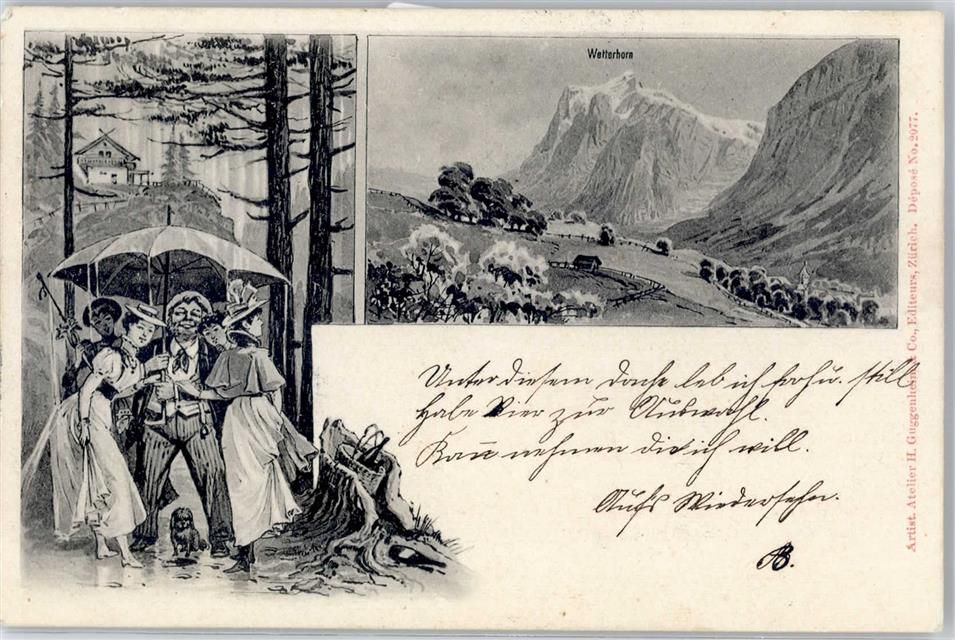 Wetterhorn
Unter diesem dache leb ich froh u. still
Habe Vier zur Auswahl.
Kann nehmen die ich will.
Aufs Wiedersehn.
AB.
Artist. Atelier H. Guggenheim & Co., Editeurs, Zürich. Déposé No. 2077.